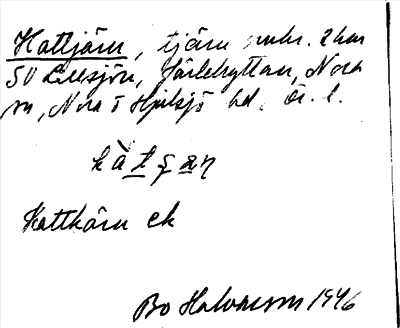 Kattjärn, tjärn omkr. 2 km
SV Lillsjön, Järlehyttan, Nora
sn, Nora o Hjulsjö hd, Ör. l.
kàtçan
Kattkärn ek
Bo Halvarsson 1946